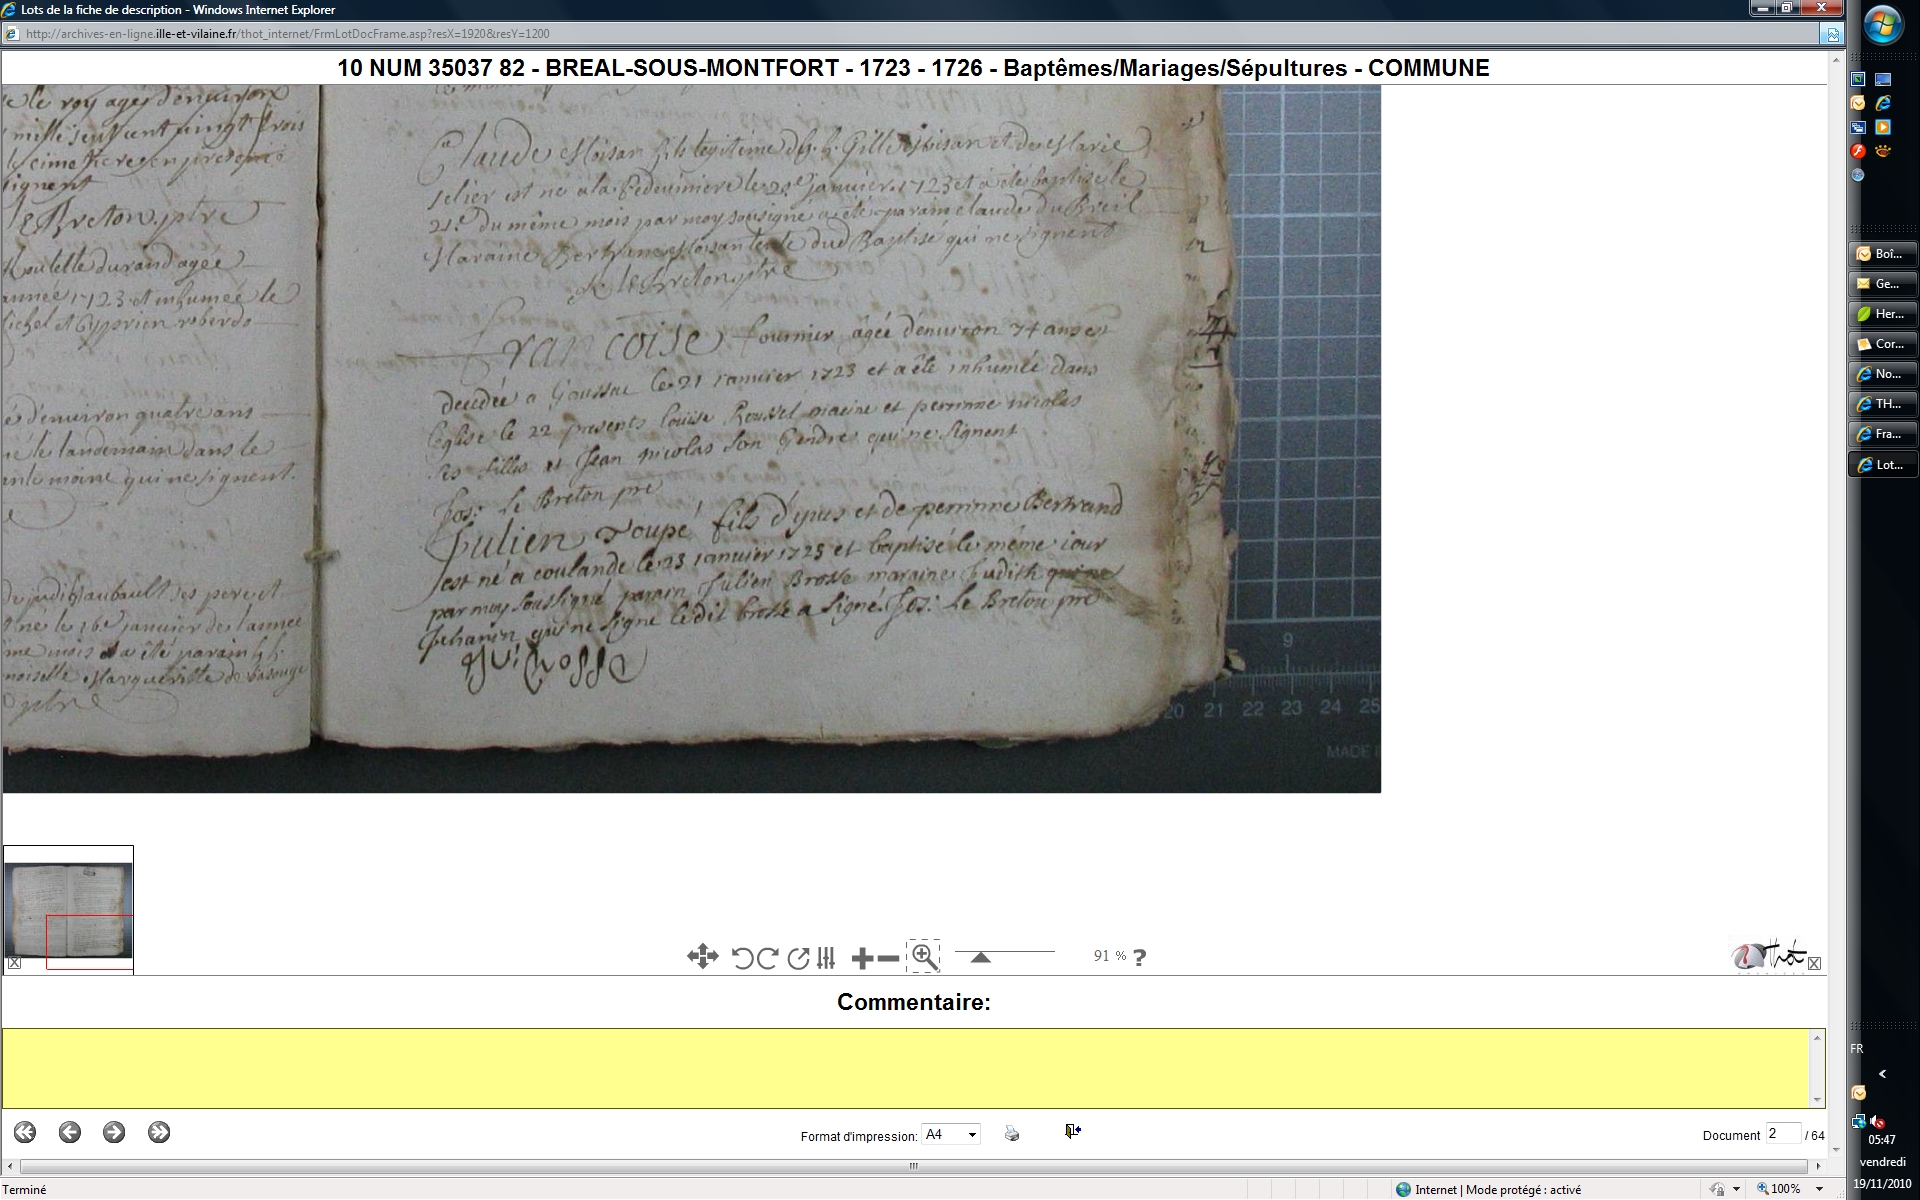 Lots de la fiche de description - Windows Internet Explorer
http://archives-en-ligne.ille-et-vilaine.fr/thot_internet/FrmLotDocFrame.asp?resX=1920&resY=1200
10 NUM 35037 82 - BREAL-SOUS-MONTFORT - 1723 - 1726 - Baptêmes/Mariages/Sépultures - COMMUNE
le roy agee d'environ
mille sept cent vingt trois
le cimetiere en presence
signent
le Breton ptre
durand agée
année 1723 et inhumée le
michel et Cyprien
d'environ quatre ans
le landemain dans le
moine qui ne signent.
ses pere et
né le 16e janvier de l'annee
mois a été parain
moiselle Margueritte de
ptre
Claude Moisan fils legitime de h. h. Gille Moisan et de Marie
est né a la le 20e janvier 1723 et a été baptisé le
21e du même mois par moy sousigné a été parain claude du Breil
Maraine Bertranne Moisan tente dud Baptisé qui ne signent
le Breton ptre
Francoise fournier âgée d'environ 74 ans est
decedée a Goussac le 21 ianvier 1723 et a été inhumée dans
l'eglise le 22 presents louise Roussel et perrinne nicolas
ses filles et Jean nicolas son Gendre qui ne signent
Jos: le Breton pre
Julien Toupé fils d'yves et de perrinne Bertrand
est né a coulande le 23 ianvier 1723 et baptisé le même iour
par moy soussigné parain Julien Brosse maraine Judith qui ne
Jehanin qui ne signe ledit brosse a signé. Jos: le Breton pre
Brosse
9
20 21 22 23 24 25
MADE
91 % ?
Thot
Commentaire:
Format d'impression: A4
Document 2 / 64
Terminé
Internet | Mode protégé : activé
100%
Boî...
Ge...
Her...
Cor...
No...
TH...
Fra...
Lot...
FR
05:47
vendredi
19/11/2010